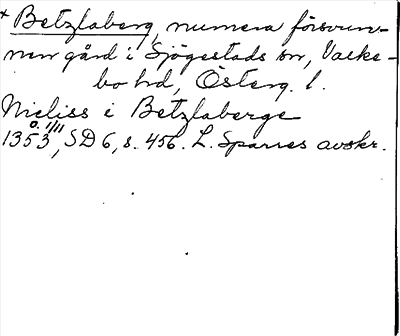 * Betzlaberg, numera försvun-
nen gård i Sjögestads sn, Valke-
bo hd, Österg. l.
Nicliss i Betzlaberge
1353 o. 1/11, SD 6, s. 456. L. Sparres avskr.